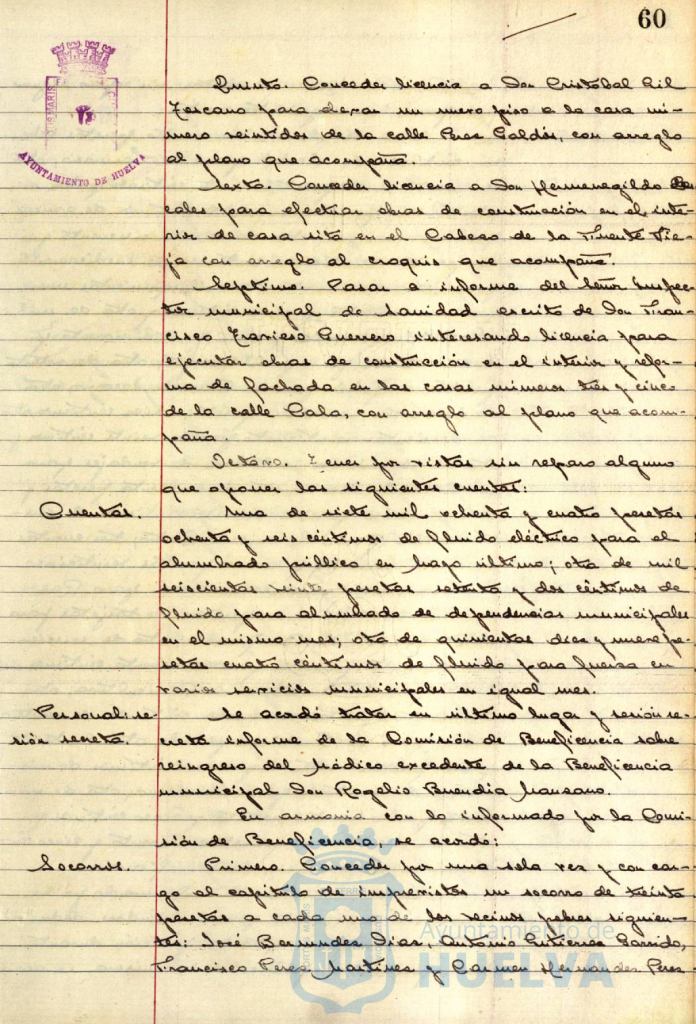 60
AYUNTAMIENTO DE HUELVA
Quinto. Conceder licencia a Don Cristóbal Gil
Toscano para elevar un nuevo piso a la casa nú-
mero veintidos de la calle Perez Galdós, con arreglo
al plano que acompaña.
Sexto. Conceder licencia a Don Hermenegildo
cales para efectuar obras de construcción en el inte-
rior de casa sita en el Cabezo de la Fuente Vie-
ja con arreglo al croquis que acompaña.
Septimo. Pasar a informe del Señor Inspec-
tor municipal de Sanidad escrito de Don Fran-
cisco Travieso Guerrero interesando licencia para
ejecutar obras de construcción en el interior y refor-
ma de fachada en las casas números tres y cinco
de la calle Cala, con arreglo al plano que acom-
paña.
Octavo. Tener por vistas sin reparo alguno
que oponer las siguientes cuentas:
Cuentas.
Una de siete mil ochenta y cuatro pesetas
ochenta y seis céntimos de fluido eléctrico para el
alumbrado público en Mayo último; otra de mil
seiscientas veinte pesetas setenta y dos céntimos de
fluido para alumbrado de dependencias municipales
en el mismo mes; otra de quinientas diez y nueve pe-
setas cuatro céntimos de fluido para fuerza en
varios servicios municipales en igual mes.
Personal: se-
sión secreta.
Se acordó tratar en último lugar y sesión se-
creta informe de la Comisión de Beneficencia sobre
reingreso del Médico excedente de la Beneficencia
municipal Don Rogelio Buendia Manzano.
En armonia con lo informado por la Comi-
sión de Beneficencia, se acordó:
Socorros.
Primero. Conceder por una sola vez y con car-
go al capítulo de imprevistos un socorro de treinta
pesetas a cada uno de los vecinos pobres siguien-
tes: José Bermudez Dias, Antonio Gutierrez Garrido,
Francisco Perez Martinez y Carmen Hernandez Perez
Ayuntamiento de
HUELVA